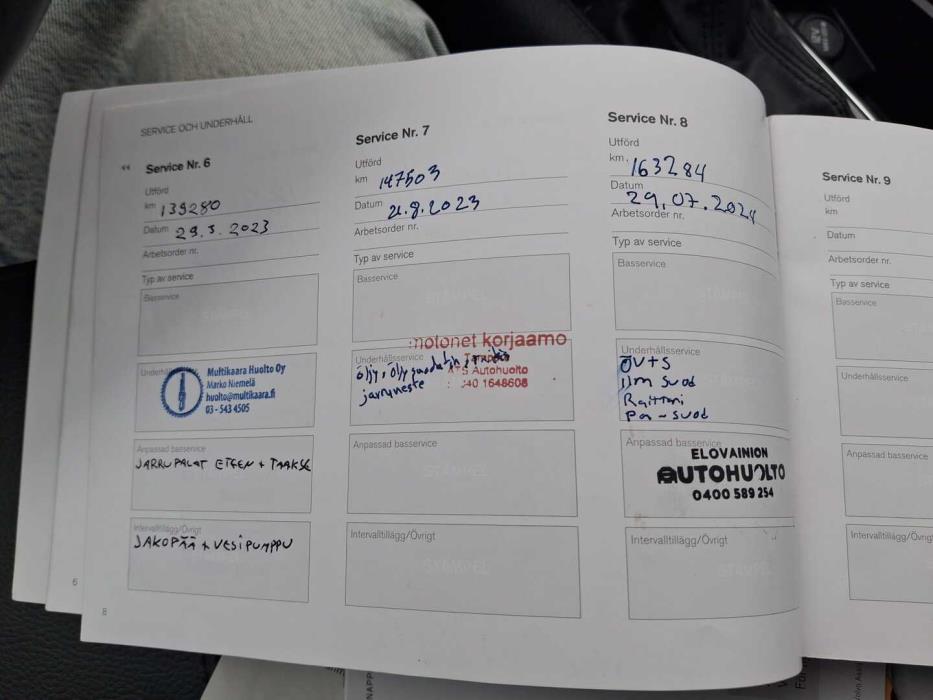 SERVICE OCH UNDERHÅLL
Service Nr. 6
Utförd
km 139280
Datum 29.5.2023
Arbetsorder nr.
Typ av service
Basservice
STÄMPEL
Multikaara Huolto Oy
Marko Niemelä
huolto@multikaara.fi
03 - 543 4505
Anpassad basservice
JARRUPALAT ETEEN + TAAKSE
Intervalltillägg/Övrigt
JAKOPÄÄ + VESIPUMPPU
6
8
Service Nr. 7
Utförd
km 147503
Datum 21.8.2023
Arbetsorder nr.
Typ av service
Basservice
STÄMPEL
motonet korjaamo
Underhållsservice
Autohuolto
040 1648608
öljy, öljysuodatin
jarruneste
Anpassad basservice
STÄMPEL
Intervalltillägg/Övrigt
STÄMPEL
Service Nr. 8
Utförd
km. 163284
Datum
29.07.2024
Arbetsorder nr.
Typ av service
Basservice
STÄMPEL
Underhållsservice
ÖV+S
ilm suod
Raittiini
Pa-suod
Anpassad basservice
ELOVAINION
AUTOHUOLTO
0400 589 254
Intervalltillägg/Övrigt
STÄMPEL
Service Nr. 9
Utförd
km
Datum
Arbetsorder nr.
Typ av service
Basservice
Underhållsservice
Anpassad basservice
Intervalltillägg/Övrigt